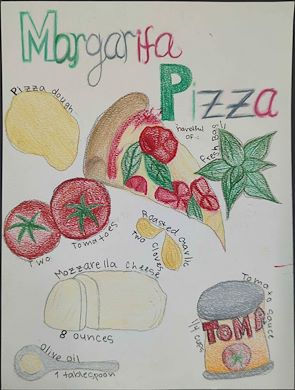 Margarita
Pizza
Pizza dough
handful
of
fresh Basil
Two
Tomatoes
Roasted Garlic
Two
Cloves
Mozzarella cheese
8 ounces
Tomato sauce
TOMA
Olive oil
1 tablespoon